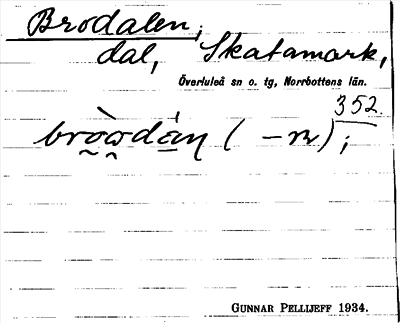 Brodalen,
dal, Skatamark,
Överluleå sn o. tg, Norrbottens län.
352.
bròwdán (-n);
GUNNAR PELLIJEFF 1934.